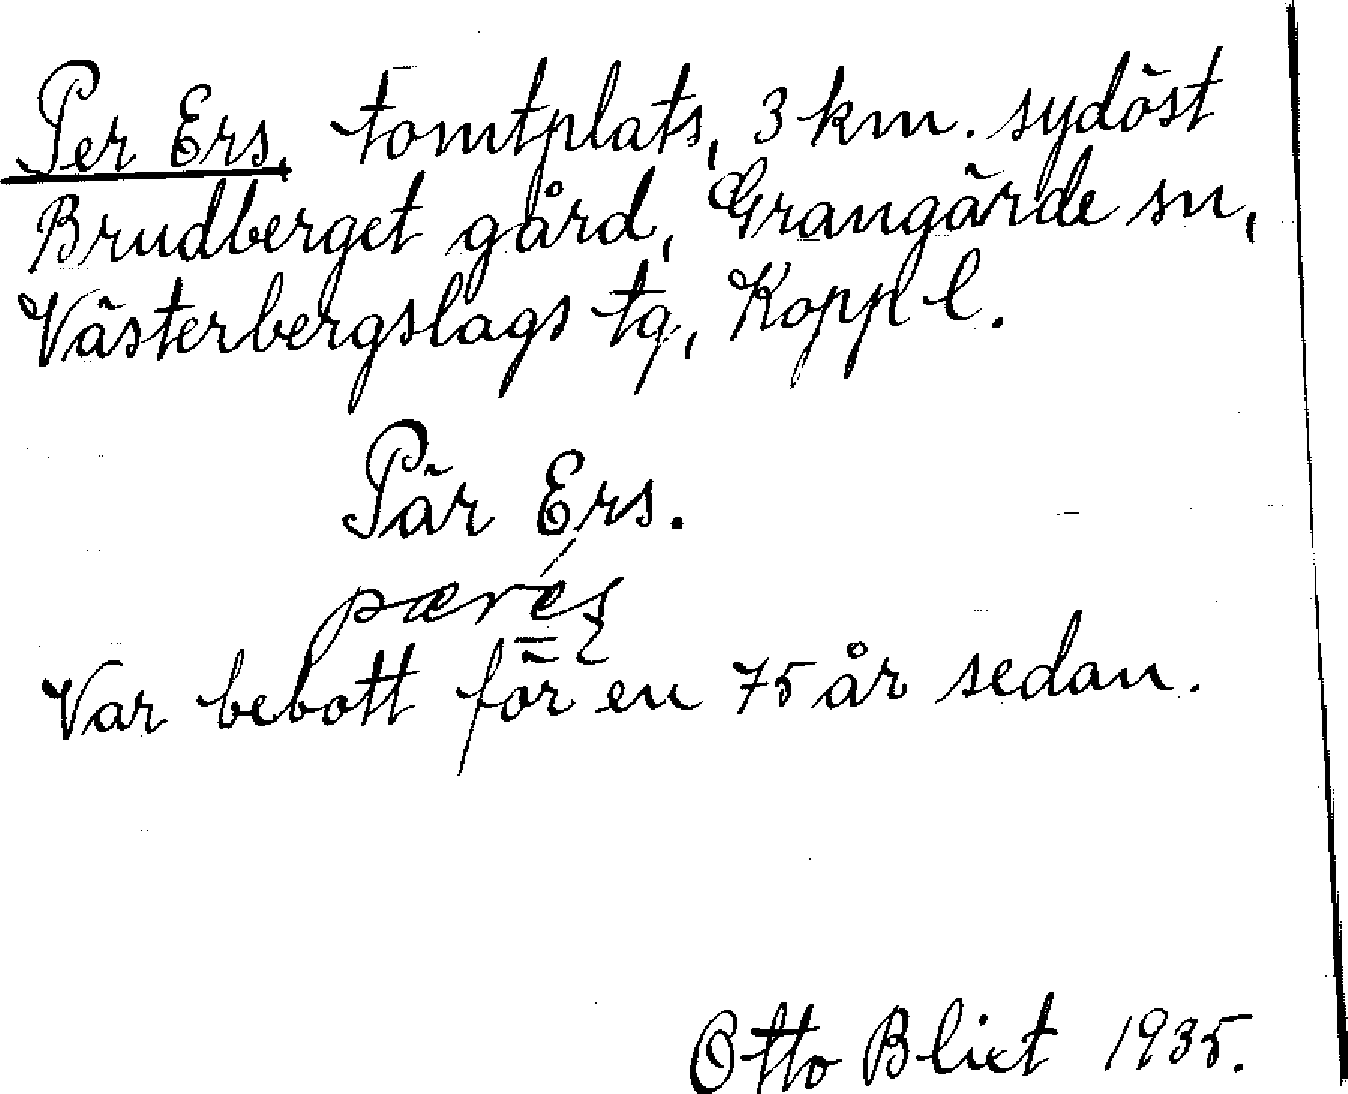 Per Ers. tomtplats, 3 km. sydöst
Brudberget gård, Grangärde sn,
Västerbergslags tg, Koppl.
Pär Ers.
Var bebott för en 75 år sedan.
Otto Blixt 1935.